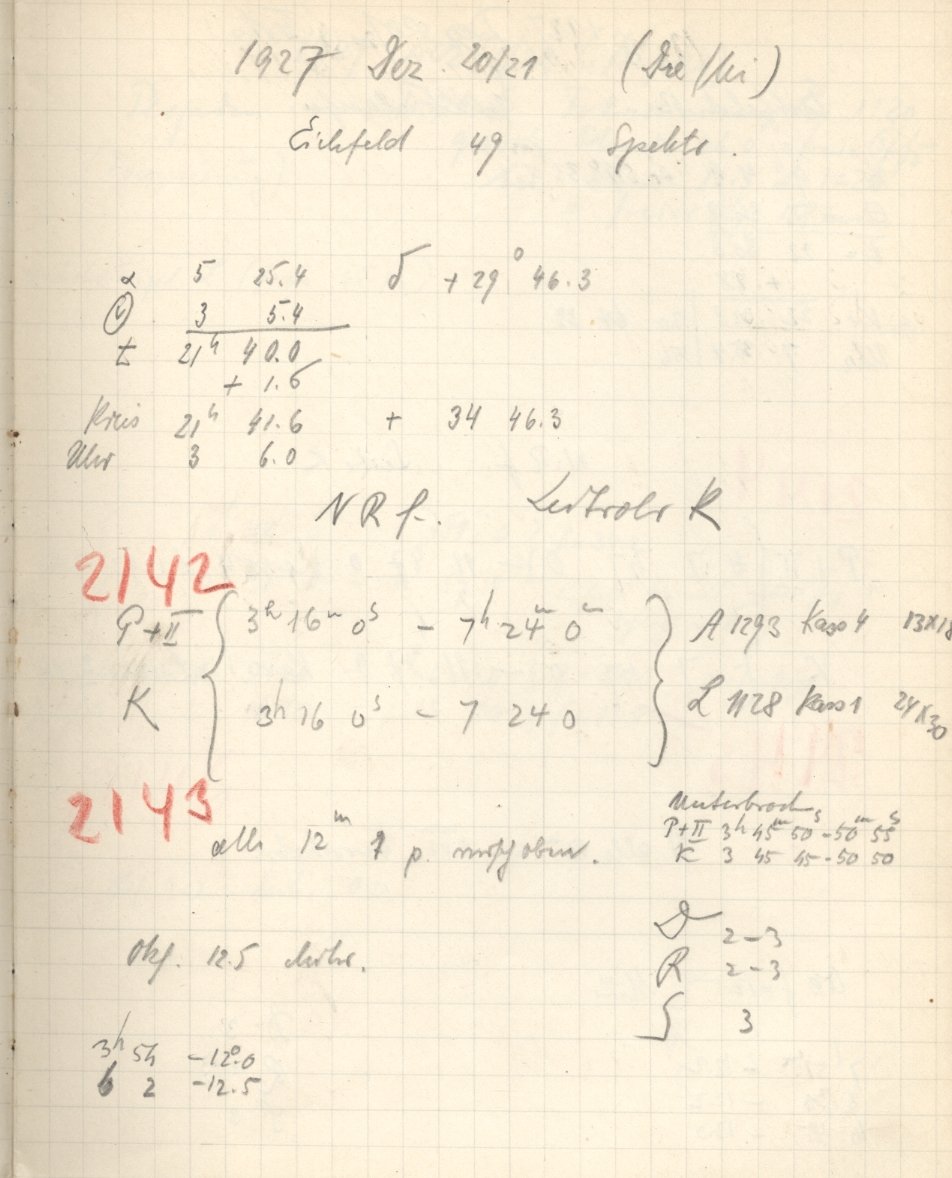 1927 Dez. 20/21 (Die/Mi)
Eichfeld 49 Spektr.
α 5 25.4 δ +29° 46.3
3 5.4
t 21h 40.0
+ 1.6
Kreis 21h 41.6 + 34 46.3
Uhr 3 6.0
NRf. Leitrohr K
2142
P+II 3h 16m 0s - 7h 24m 0m A 1293 Kass 4 13x18
K 3h 16 0s - 7 24 0 L 1128 Kass 1 24x30
2143
Unterbroch.
P+II 3h 45m 50s - 50m 55s
K 3 45 45 - 50 50
alle 12m 1 p. nach oben.
D 2-3
Okf. 12.5
R 2-3
S 3
3h 5h -12°.0
6 2 -12.5